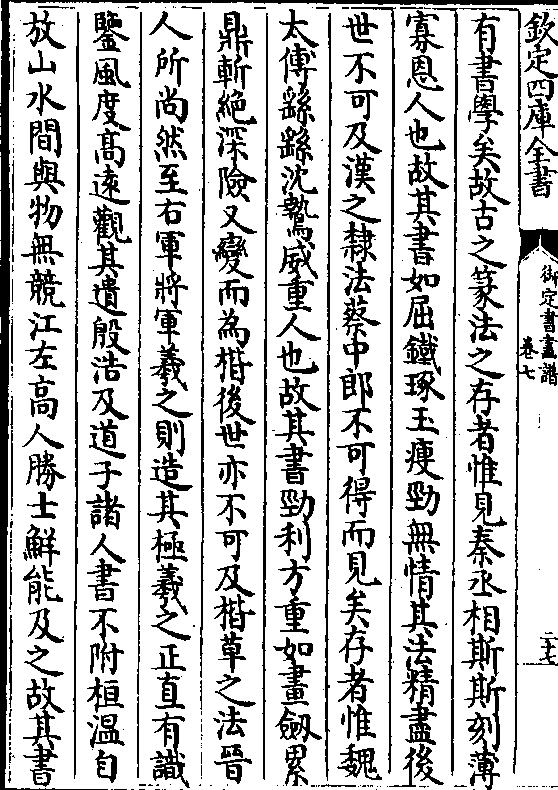 欽定四庫全書
御定書畫譜
卷七
二十七
有書學矣故古之篆法之存者惟見秦丞相斯斯刻薄
寡恩人也故其書如屈鐵琢玉瘦勁無情其法精盡後
世不可及漢之隸法蔡中郎不可得而見矣存者惟魏
太傅繇繇沈鷙威重人也故其書勁利方重如畫劔累
鼎斬絕深險又變而為楷後世亦不可及楷草之法晉
人所尚然至右軍將軍羲之則造其極羲之正直有識
鑒風度髙逺觀其遺殷浩及道子諸人書不附桓溫自
放山水間與物無競江左高人勝士鮮能及之故其書